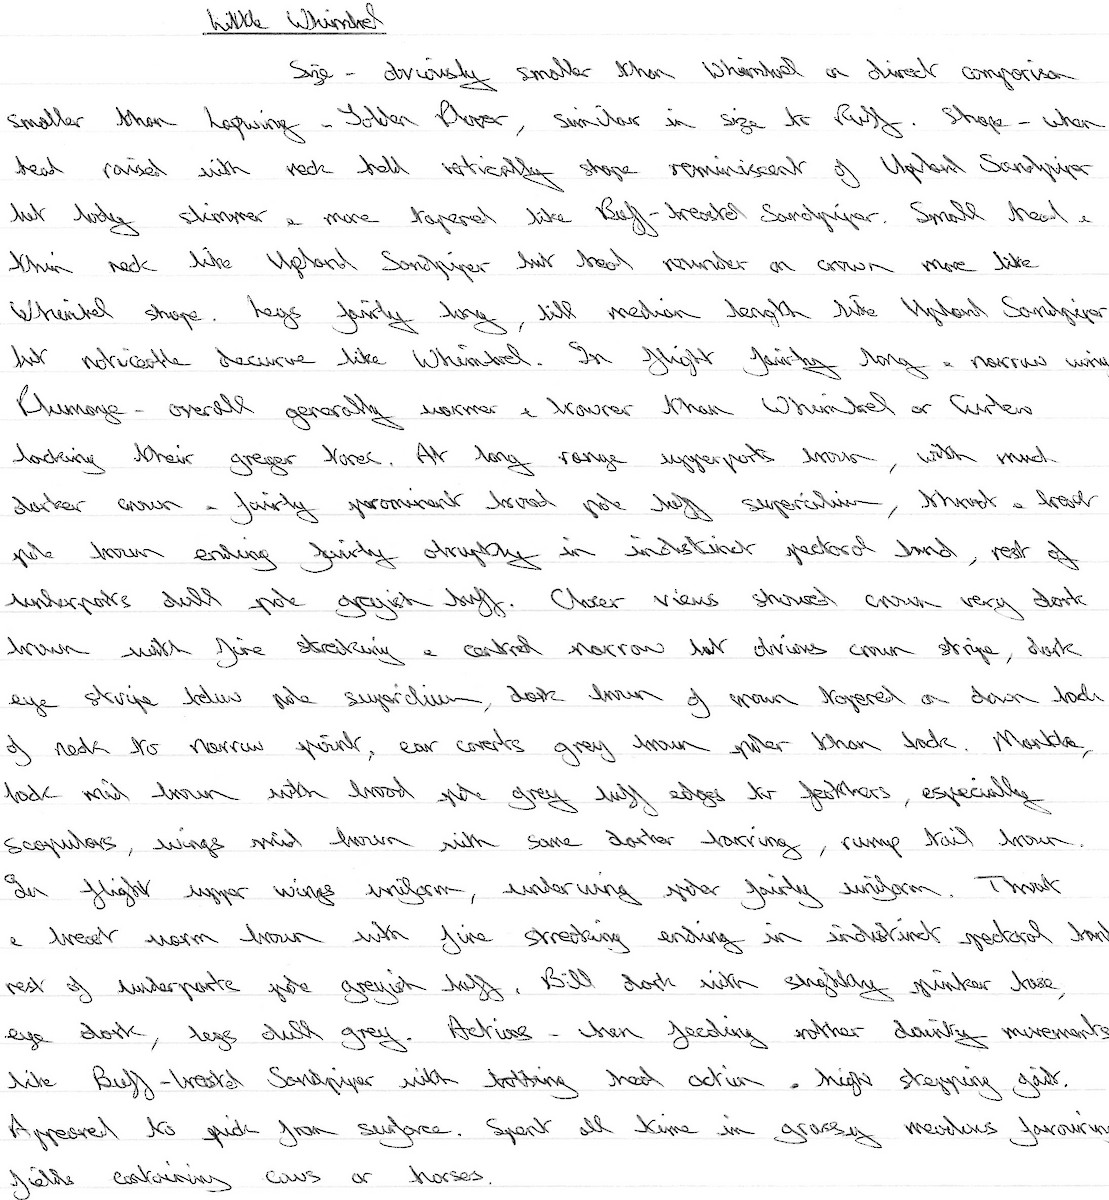 Little Whimbrel
Size - obviously smaller than Whimbrel on direct comparison
smaller than Lapwing + Golden Plover, similar in size to Ruff. Shape - when
head raised with neck held vertically shape reminiscent of Upland Sandpiper
but body slimmer + more tapered like Buff-breasted Sandpiper. Small head +
thin neck like Upland Sandpiper but head rounder on crown more like
Whimbrel shape. Legs fairly long, bill medium length like Upland Sandpiper
but noticeable decurve like Whimbrel. In flight fairly long + narrow wing
Plumage - overall generally warmer + browner than Whimbrel or Curlew
lacking their greyer tones. At long range upperparts brown, with much
darker crown + fairly prominent broad pale buff supercilium, throat + breast
pale brown ending fairly abruptly in indistinct pectoral band, rest of
underparts dull pale greyish buff. Closer views showed crown very dark
brown with fine streaking + central narrow but obvious crown stripe, dark
eye stripe below pale supercilium, dark brown of crown tapered on down back
of neck to narrow point, ear coverts grey brown paler than back. Mantle,
back mid brown with broad pale grey buff edges to feathers, especially
scapulars, wings mid brown with some darker barring, rump tail brown.
In flight upper wings uniform, underwing paler fairly uniform. Throat
+ breast warm brown with fine streaking ending in indistinct pectoral band
rest of underparts pale greyish buff. Bill dark with slightly pinker base,
eye dark, legs dull grey. Actions - when feeding rather dainty movements
like Buff-breasted Sandpiper with bobbing head action + high stepping gait.
Appeared to pick from surface. Spent all time in grassy meadows favouring
fields containing cows or horses.